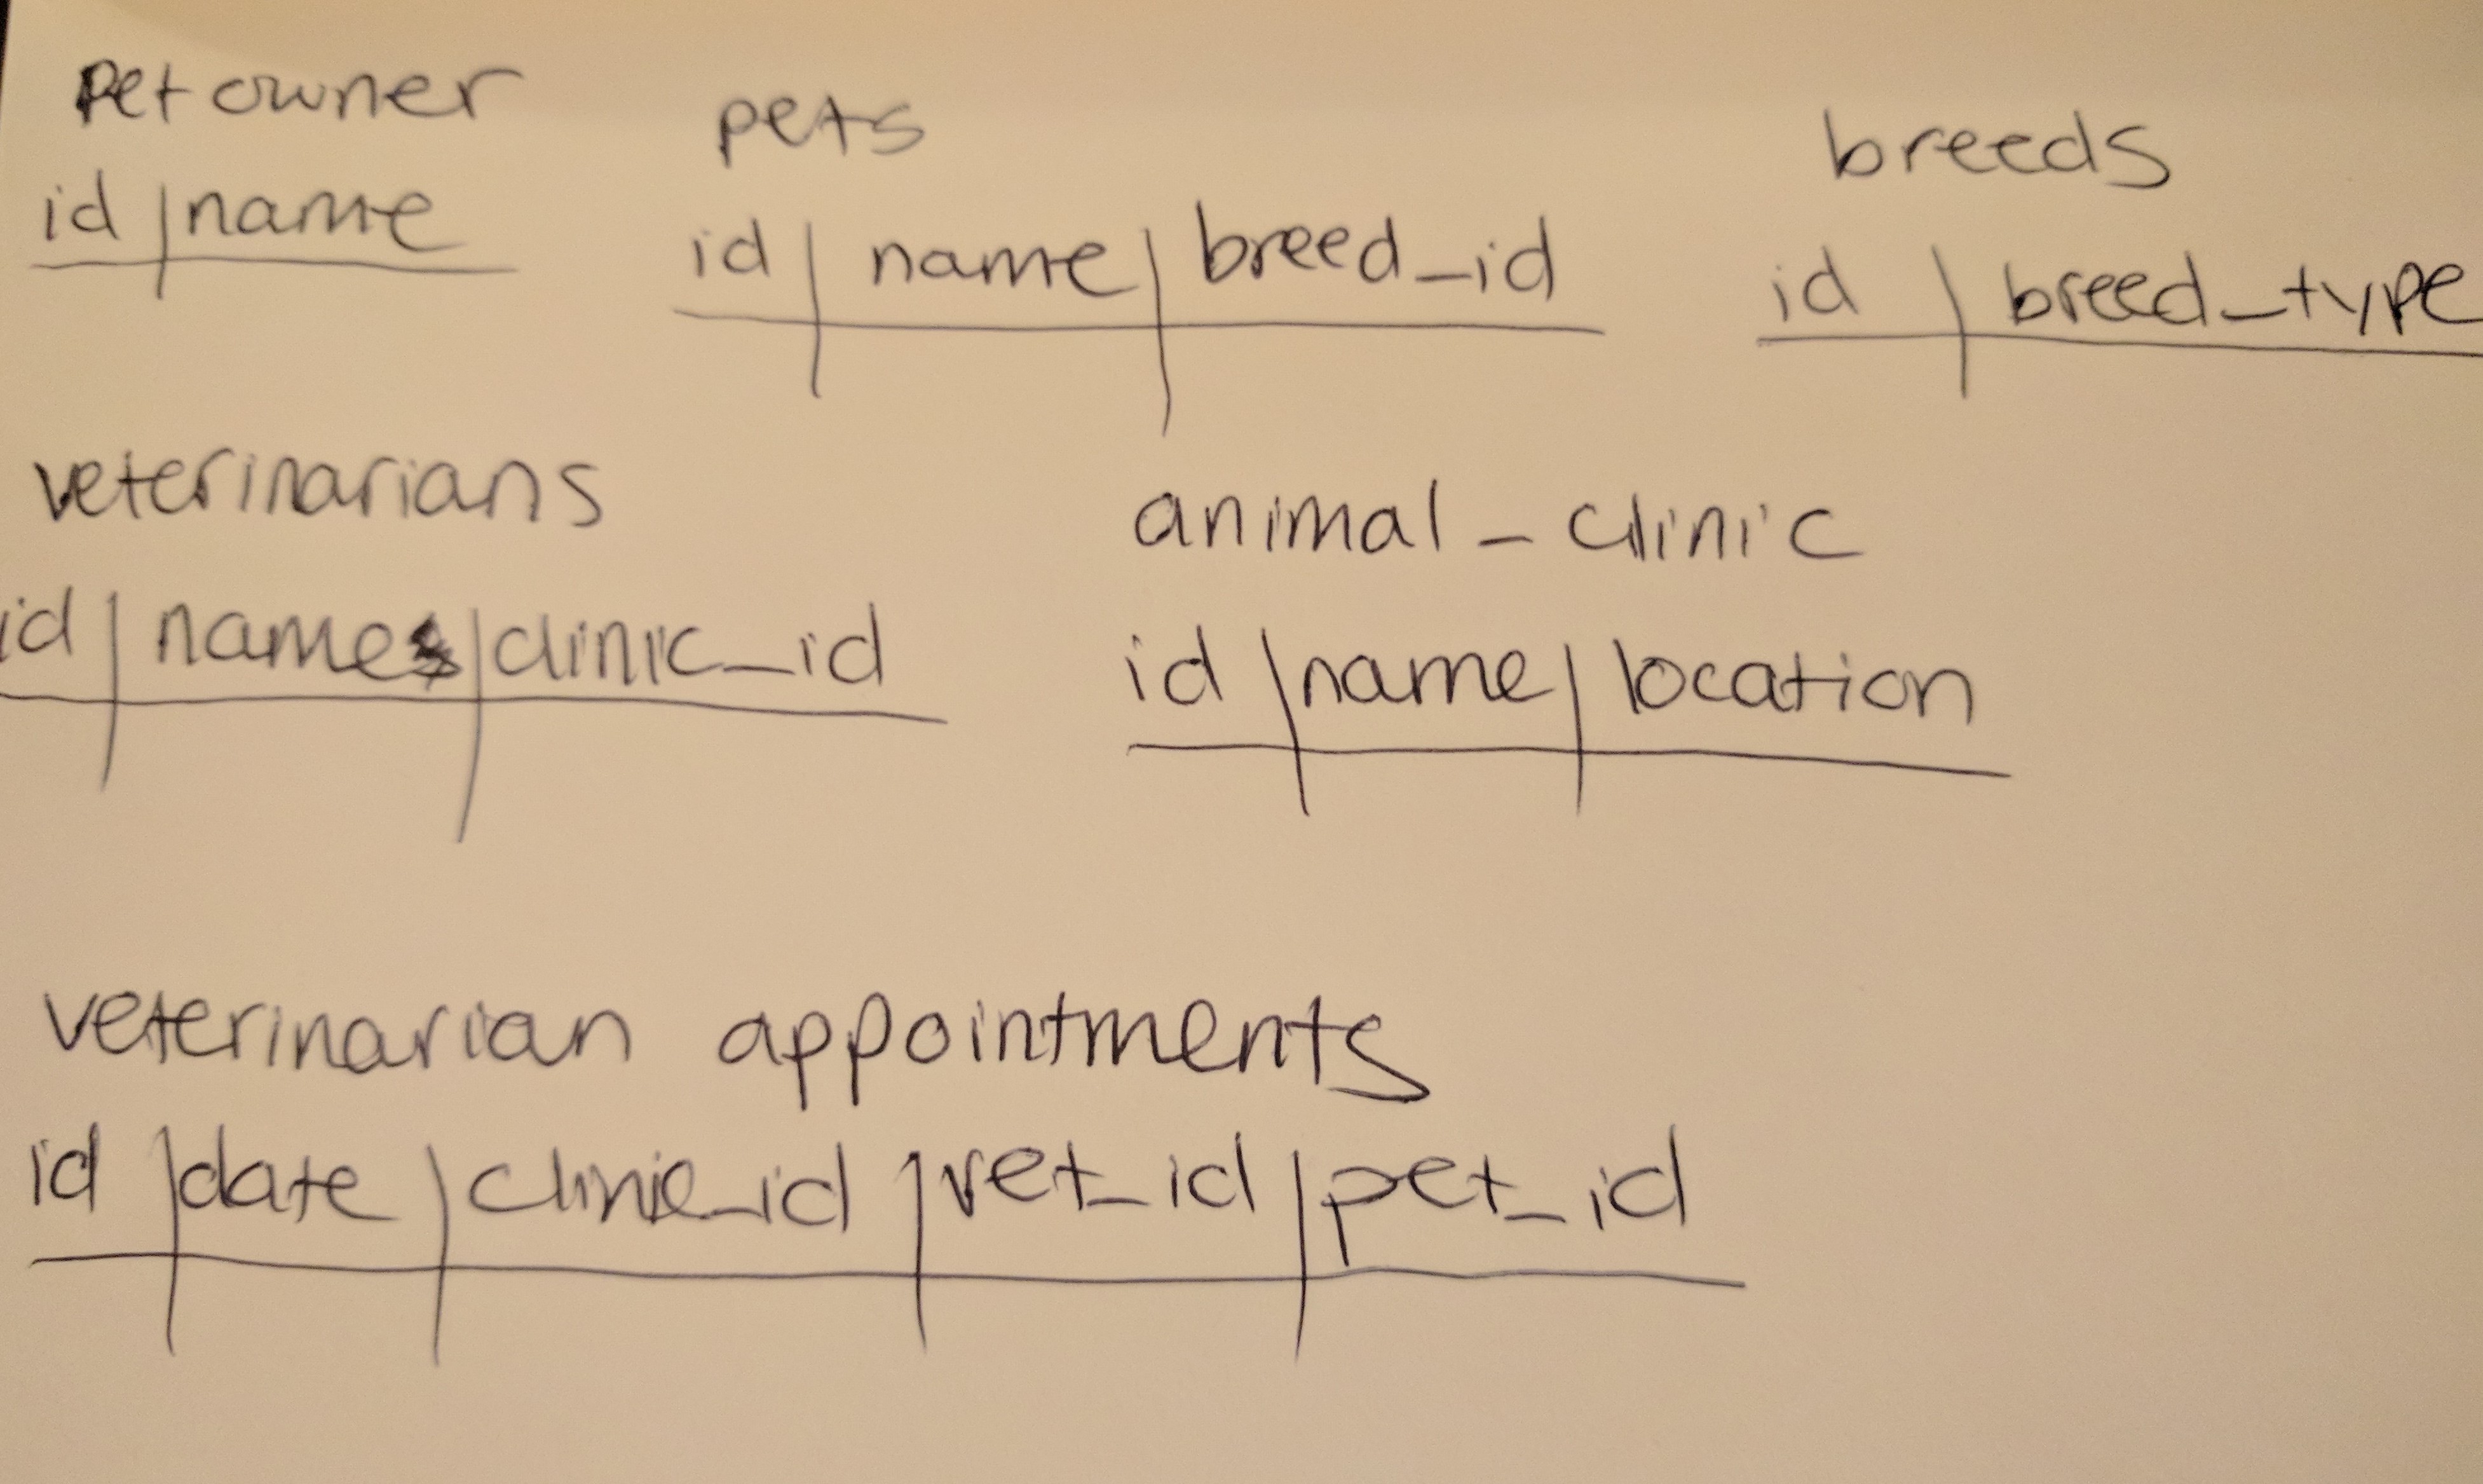 Pet owner
id | name
pets
id | name | breed_id
breeds
id | breed_type
veterinarians
id | name | clinic_id
animal_clinic
id | name | location
veterinarian appointments
id | date | clinic_id | vet_id | pet_id